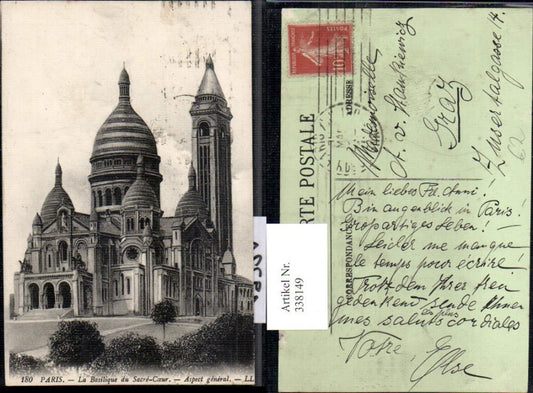 180 PARIS. — La Basilique du Sacré-Cœur. — Aspect général. — LL
Artikel Nr.
338149
POSTES
10
CARTE POSTALE
CORRESPONDANCE
ADRESSE
A. v. Stankiewicz
Graz
Zusertalgasse 14.
Mein liebes Frl. Anni!
Bin augenblick in Paris!
Großartiges Leben! –
Leider me manque
le temps pour écrire!
Trotzdem Ihrer treu
gedenkend sende Ihnen
mes saluts les plus cordiales
Votre
Else